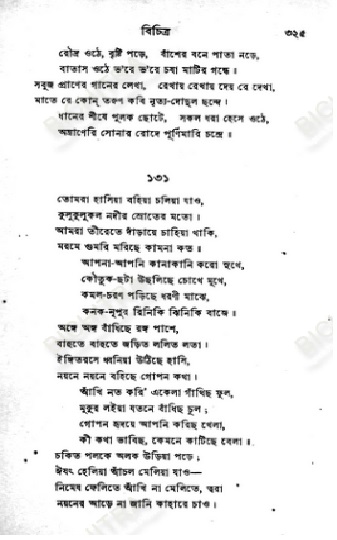 বিচিত্র ৩২৫
রৌদ্র ওঠে, বৃষ্টি পড়ে, বাঁশের বনে পাতা নড়ে,
বাতাস ওঠে ভ'রে ভ'রে চষা মাটির গন্ধে।
সবুজ প্রাণের গানের লেখা, রেখায় রেখায় দেয় রে দেখা,
মাতে রে কোন্ তরুণ কবি নৃত্য-দোদুল ছন্দে।
ধানের শীষে পুলক ছোটে, সকল ধরা হেসে ওঠে,
অঘ্রাণেরি সোনার রোদে পূর্ণিমারি চন্দ্রে।
১৩১
তোমরা হাসিয়া বহিয়া চলিয়া যাও,
কুলুকুলুকল নদীর স্রোতের মতো।
আমরা তীরেতে দাঁড়ায়ে চাহিয়া থাকি,
মরমে গুমরি মরিছে কামনা কত॥
আপনা-আপনি কানাকানি করো সুখে,
কৌতুক-ছটা উছলিছে চোখে মুখে,
কমল-চরণ পড়িছে ধরণী মাঝে,
কনক-নূপুর রিনিকি ঝিনিকি বাজে॥
অঙ্গে অঙ্গ বাঁধিছে রঙ্গ পাশে,
বাহুতে বাহুতে জড়িত ললিত লতা।
ইঙ্গিতরসে ধ্বনিয়া উঠিছে হাসি,
নয়নে নয়নে বহিছে গোপন কথা।
আঁখি নত করি' একেলা গাঁথিছ ফুল,
মুকুর লইয়া যতনে বাঁধিছ চুল;
গোপন হৃদয়ে আপনি করিছ খেলা,
কী কথা ভাবিছ, কেমনে কাটিছে বেলা॥
চকিত পলকে অলক উড়িয়া পড়ে;
ঈষৎ হেলিয়া আঁচল মেলিয়া যাও—
নিমেষ ফেলিতে আঁখি না মেলিতে, ত্বরা
নয়নের আড়ে না জানি কাহারে চাও।